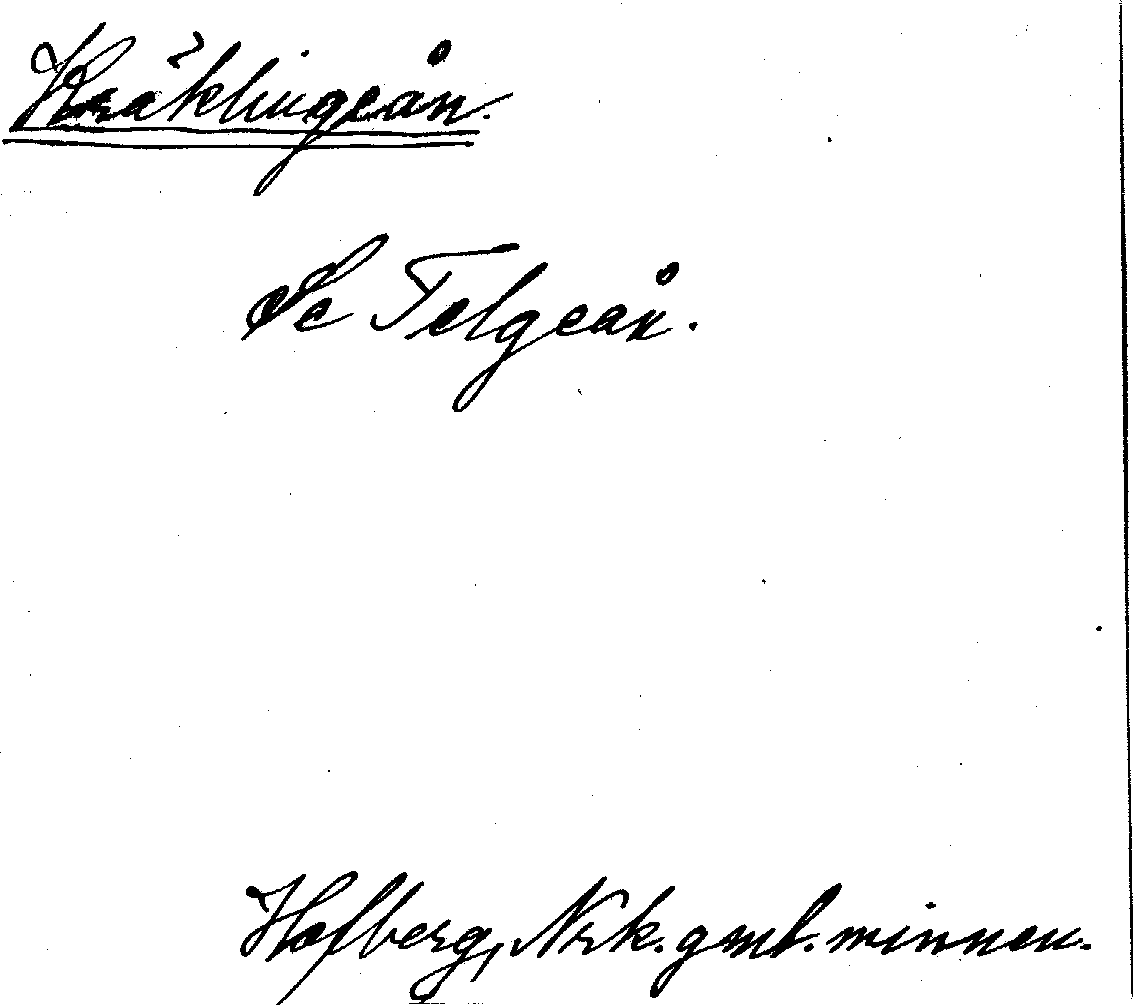 Kräklingeån.
Se Telgeån.
Hofberg, Nrk. gml. minnen.